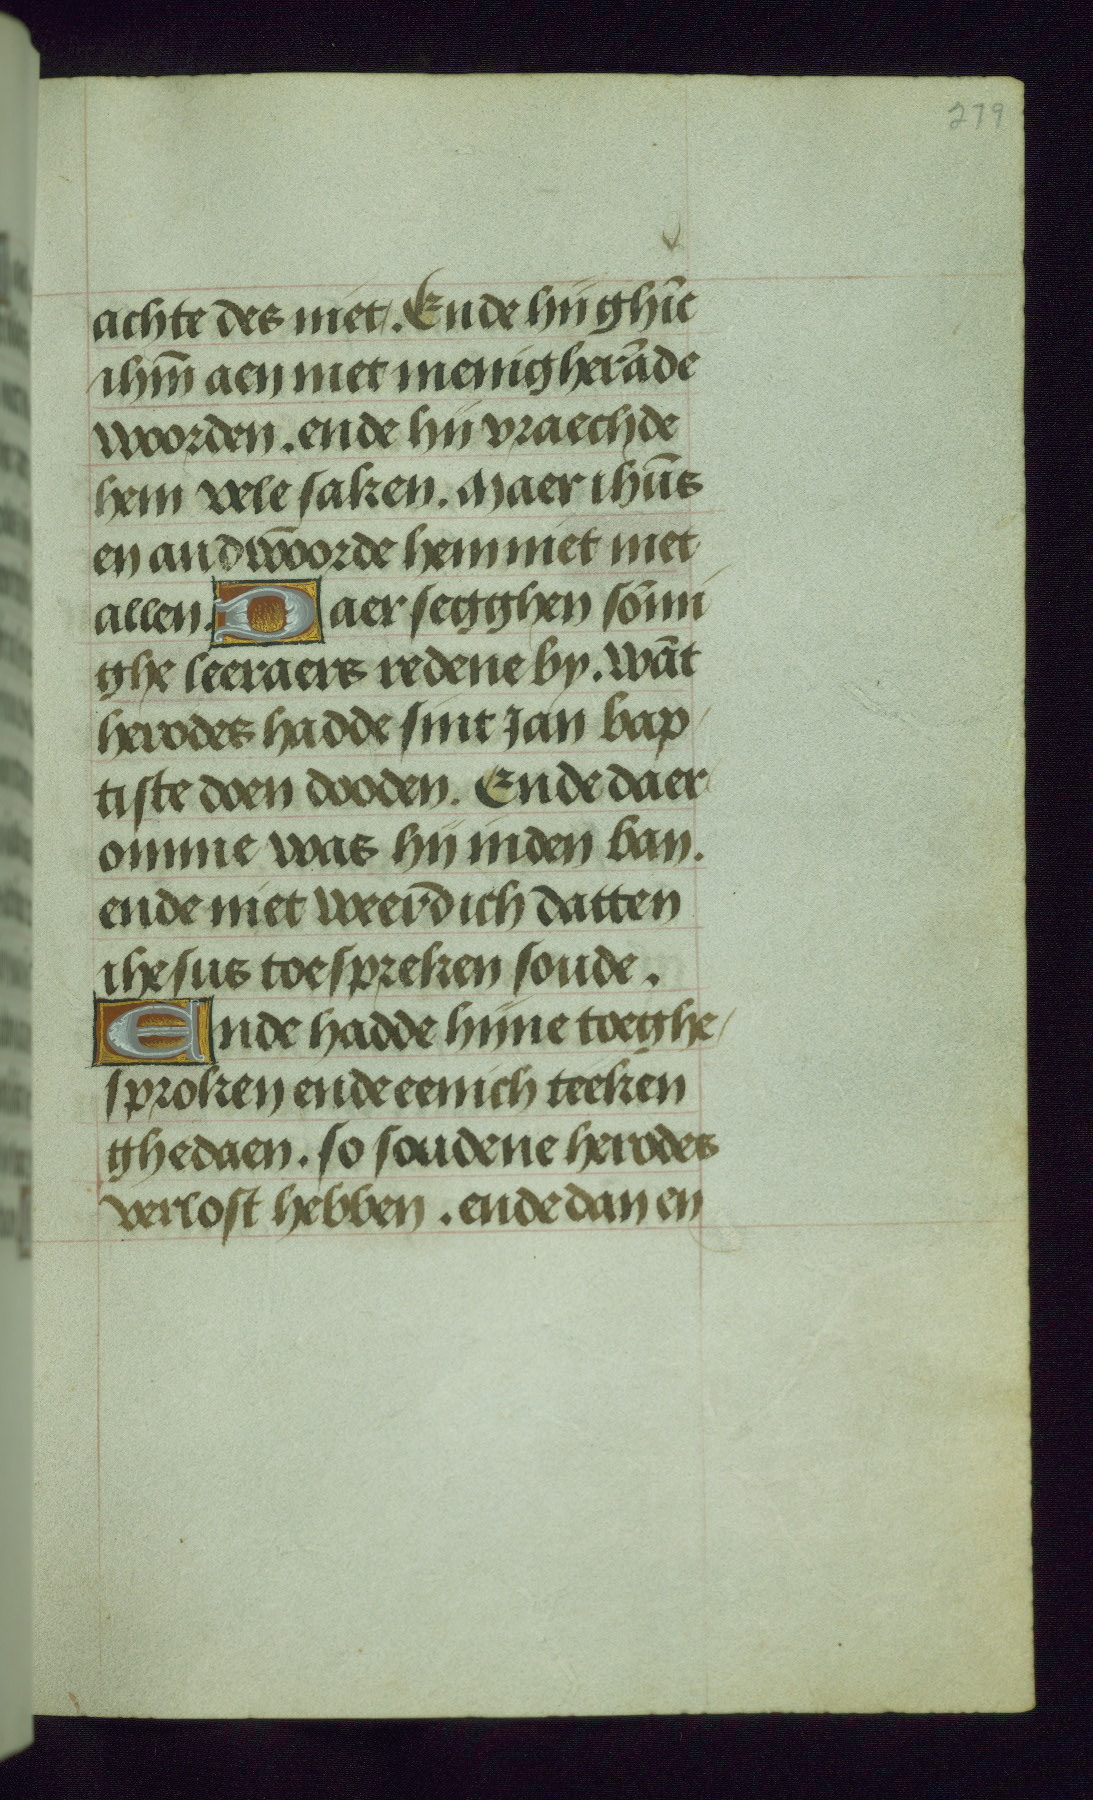 279
achte des niet. Ende hij ghīc
ihm̄ aen met menigherāde
woorden. ende hij vraechde
hem vele saken. Maer ihūs
en andwōorde hem niet met
allen. Daer segghen som̄i
ghe leeraers redene by. Wāt
herodes hadde sint Jan bap
tiste doen dooden. Ende daer
omme was hij inden ban.
ende niet weerdich datten
ihesus toespreken soude.
Ende hadde hijne toeghe
sproken ende eenich teeken
ghedaen. so soudene herodes
verlost hebben. ende dan en